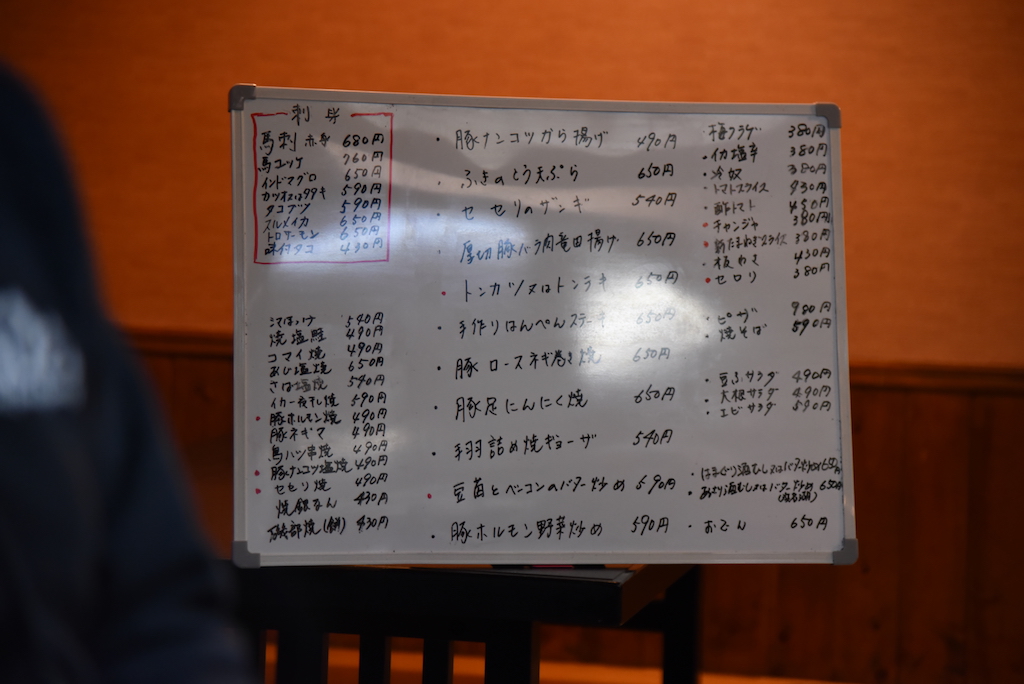 刺身
馬刺 赤身 680円
馬ユッケ 760円
インドマグロ 650円
カツオ又はタタキ 590円
タコブツ 590円
スルメイカ 650円
トロサーモン 650円
味付タコ 430円
シマほっけ 540円
焼塩鮭 490円
コマイ焼 490円
あじ塩焼 650円
さば塩焼 590円
イカ一夜干し焼 590円
・豚ホルモン焼 490円
豚ネギマ 490円
鳥ハツ串焼 490円
・豚ナンコツ塩焼 490円
・セセリ焼 490円
焼銀なん 430円
磯部焼(餅) 430円
・豚ナンコツから揚げ 490円
・ふきのとう天ぷら 650円
・セセリのザンギ 540円
・厚切豚バラ肉竜田揚げ 650円
・トンカツ又はトンテキ 650円
・手作りはんぺんステーキ 650円
・豚ロースネギ巻き焼 650円
・豚足にんにく焼 650円
・手羽詰め焼ギョーザ 540円
・豆苗とベーコンのバター炒め 590円
・豚ホルモン野菜炒め 590円
梅クラゲ 380円
・イカ塩辛 380円
・冷奴 380円
・トマトスライス 430円
・酢トマト 450円
・チャンジャ 380円
・新たまねぎスライス 380円
・板わさ 430円
・セロリ 380円
・ピザ 980円
・焼そば 590円
・豆ふサラダ 490円
・大根サラダ 490円
・エビサラダ 590円
・はまぐり酒むし又はバター炒め 650円
・あさり酒むし又はバター炒め 650円
・おでん 650円